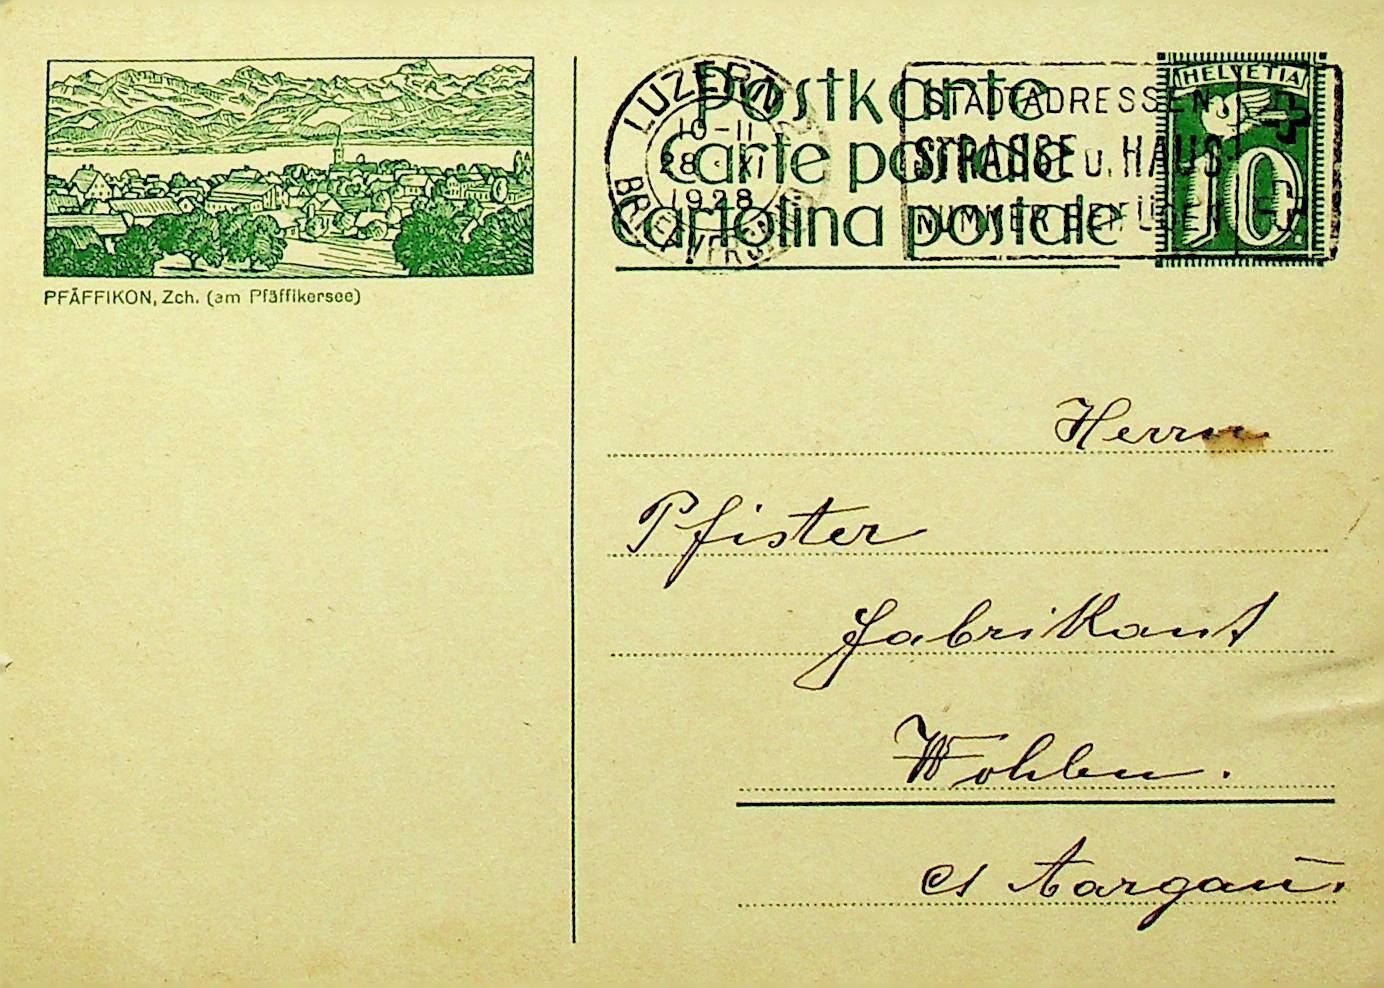 PFÄFFIKON, Zch. (am Pfäffikersee)
Postkarte
Carte postale
Cartolina postale
LUZERN
10-11
28 · XI
1928
STADTADRESSEN:
STRASSE u. HAUS-
NUMMER BEIFÜGEN
HELVETIA
10
Herrn
Pfister
Fabrikant
Wohlen.
Aargau.